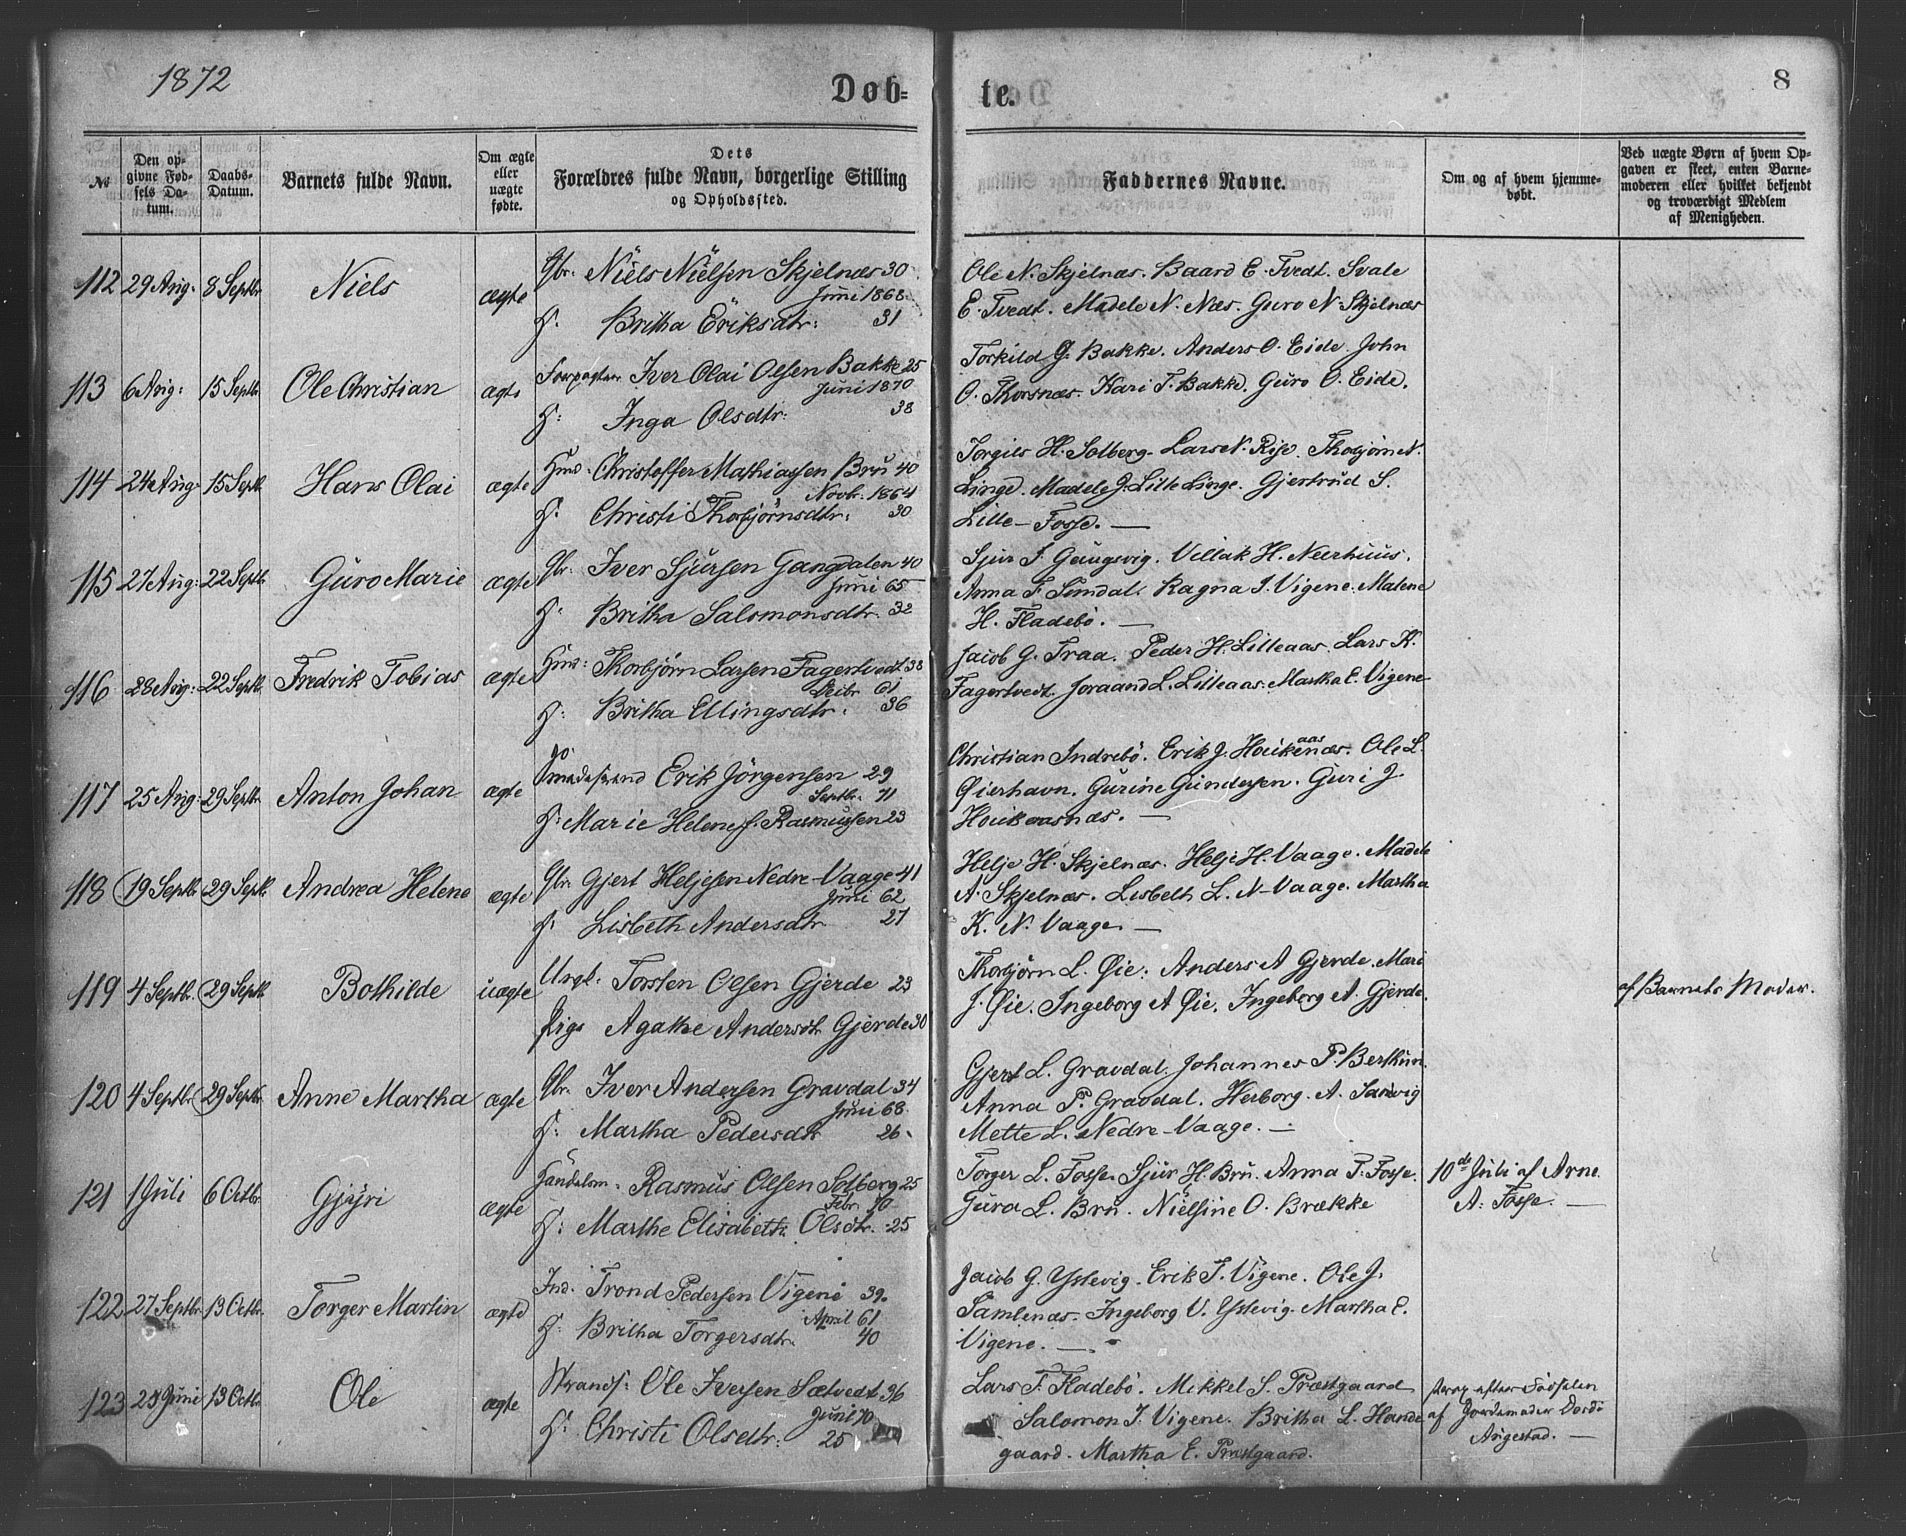 1872
Døb= te.
8
No
Den op-
givne Fød-
sels Da-
tum.
Daabs-
Datum.
Barnets fulde Navn.
Om ægte
eller
uægte
fødte.
Dets
Forældres fulde Navn, borgerlige Stilling
og Opholdssted.
Faddernes Navne.
Om og af hvem hjemme-
døbt.
Ved uægte Børn af hvem Op-
gaven er skeet, enten Barne-
moderen eller hvilket bekjendt
og troværdigt Medlem
af Menigheden.
112 29 Aug: 8 Septbr Niels ægte
Gbr. Niels Nielsen Skjelnæs 30
Juni 1868
H: Britha Eriksdtr: 31
Ole N. Skjelnæs. Baard E. Tvedt. Svale
E. Tvedt. Madele N. Næs. Guro N. Skjelnæs
113 6 Aug: 15 Septbr Ole Christian ægte
Forpagter Iver Olai Olsen Bakke 25
Juni 1870
H: Inga Olsdtr: 38
Torkild G. Bakke. Anders O. Eide. John
O. Thorsnæs. Kari T. Bakke. Guro O. Eide.
114 24 Aug: 15 Septbr Hans Olai ægte
Huus. Christoffer Mathiassen Bru 40
Novbr. 1864
H: Christi Thorbjørnsdtr: 30
Torgils H. Solberg. Lars N. Rise. Thorbjørn N.
Linge. Madele J. Lille Linge. Gjertrud S.
Lille-Fosse. —
115 27 Aug: 22 Septbr Guro Marie ægte
Gbr. Iver Sjursen Gangdalen 40
Juni 65
H: Britha Salomonsdtr. 32
Sjur J. Gaugsvig. Villak H. Neerhuus.
Anna F. Sundal. Ragna I. Vigene. Malene
H. Fladebö. —
116 28 Aug: 22 Septbr Fredrik Tobias ægte
Huus: Thorbjørn Larsen Fagertvedt 38
61
H: Britha Ellingsdtr. 36
Jacob G. Traa. Peder H. Lilleaas. Lars K.
Fagertvedt. Joraand L. Lilleaas. Martha E. Vigene
117 25 Aug: 29 Septbr Anton Johan ægte
Erik Jörgensen 29
Septbr. 71
H: Marie Helene f. Rasmussen 23
Christian Indrebö. Erik J. Houkenæs. aas Ole L.
Øierhavn. Gurine Gundersen. Guri J.
Houkaasnæs. —
118 19 Septbr 29 Septbr Andrea Helene ægte
Gbr. Gjert Heljesen Nedre-Vaage 41
Juni 62
H: Lisbeth Andersdtr 27
Helje H. Skjelnæs. Helje H. Vaage. Madele
A. Skjelnæs. Lisbeth L. N-Vaage. Martha
K. N. Vaage. —
119 4 Septbr. 29 Septbr Bothilde uægte
Ungk. Torsten Olsen Gjerde 23
Pige Agathe Andersdtr Gjerde 30
Thorbjørn L. Øie. Anders A Gjerde. Mari
J. Øie. Ingeborg A Øie. Ingeborg A. Gjerde.
af Barnets Moder.
120 4 Septbr 29 Septbr. Anne Martha ægte
Gbr. Iver Andersen Gravdal 34
Juni 68
H: Martha Pedersdtr 26
Gjert L. Gravdal. Johannes P. Berthun
Anna P. Gravdal. Herborg. A.
Mette L. Nedre-Vaage. —
121 1 Juli 6 Octbr Gjyri ægte
Handelsm: Rasmus Olsen Solberg 25
Febr. 70
H: Marthe Elisabeth Olsdtr. 25
Torger L. Fosse. Sjur H. Bru. Anna T. Fosse.
Gura L. Bru. Nielsine O. Brække
10de Juli af Arne
A. Fosse. —
122 27 Septbr 13 Octbr. Torger Martin ægte
Ind. Trond Pedersen Vigene 39.
April 61
H: Britha Torgersdtr. 40
Jacob G. Ystevig. Erik T. Vigene. Ole J.
Samlenæs. Ingeborg V. Ystevig. Martha E.
Vigene. —
123 Juni 13 Octbr. Ole ægte
Strands: Ole Iversen Sætvedt 36
Juni 70
H: Christi Olsdtr. 25
Lars T. Fladebö. Mikkel S. Præstgaard
Salomon I. Vigene. Britha L. Hande
gaard. Martha E. Præstgaard.
strax efter Fødselen
af Jordemoder Dordi
Augestad. —